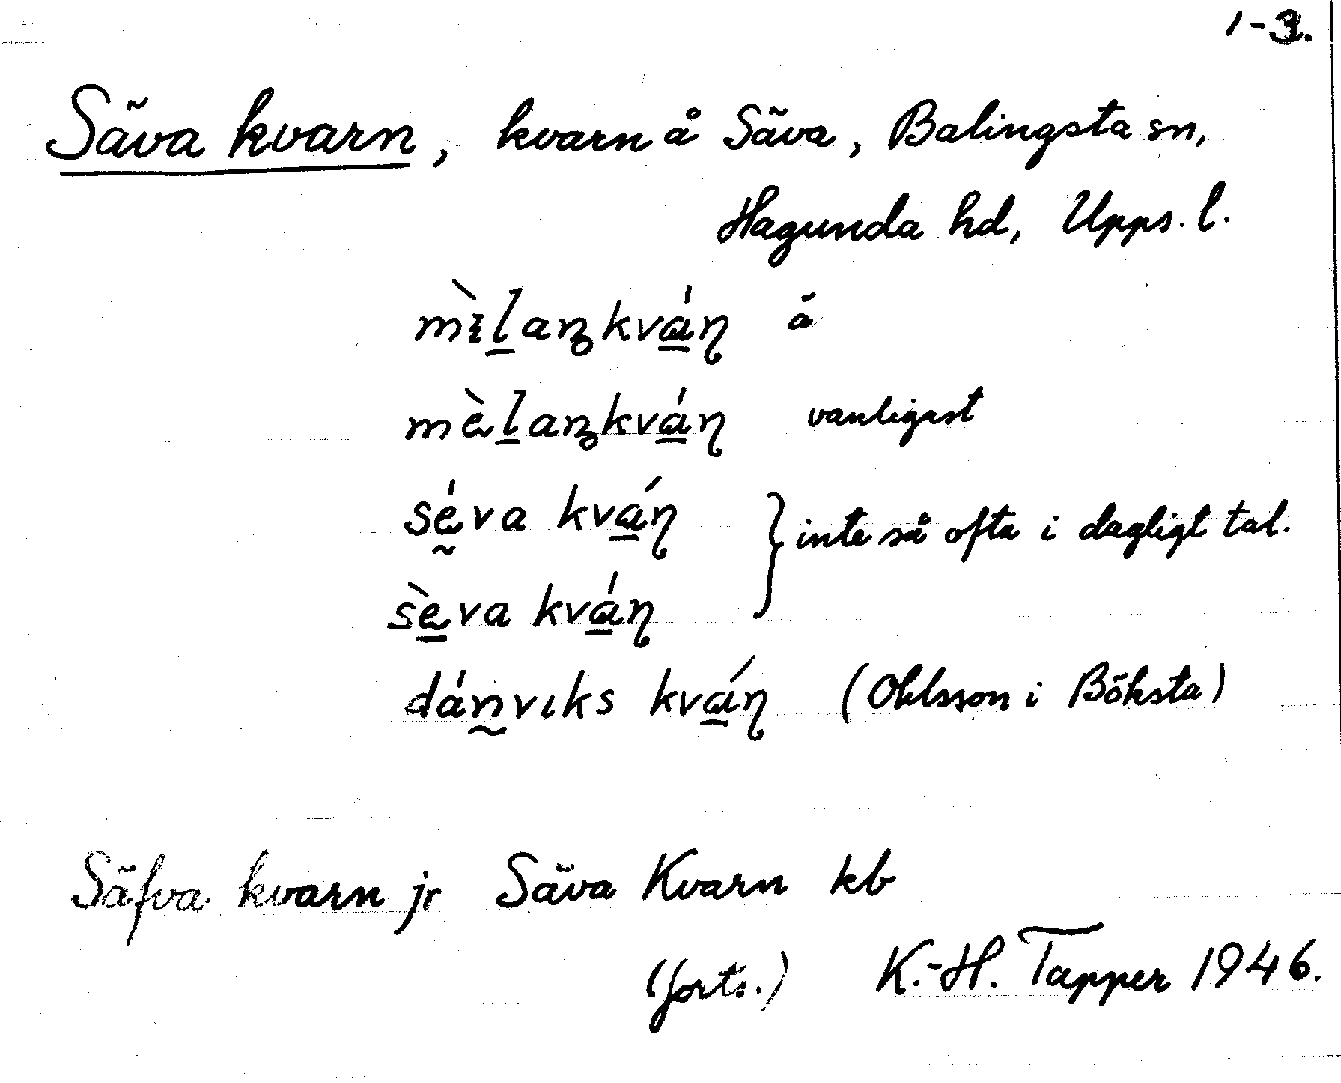 1-3.
Säva kvarn, kvarn å Säva, Balingsta sn,
Hagunda hd, Upps. l.
mɪ̀l̲aŋkvá̲ɳ ä
mæ̀l̲aŋkvá̲ɳ vanligast
sḛ́va kvá̲ɳ } inte så ofta i dagligt tal.
sè̲va kvá̲ɳ
dán̰vıks kvá̲ɳ (Ohlsson i Böksta)
Säfva kvarn jr Säva Kvarn kb
(forts.) K.-H. Tapper 1946.